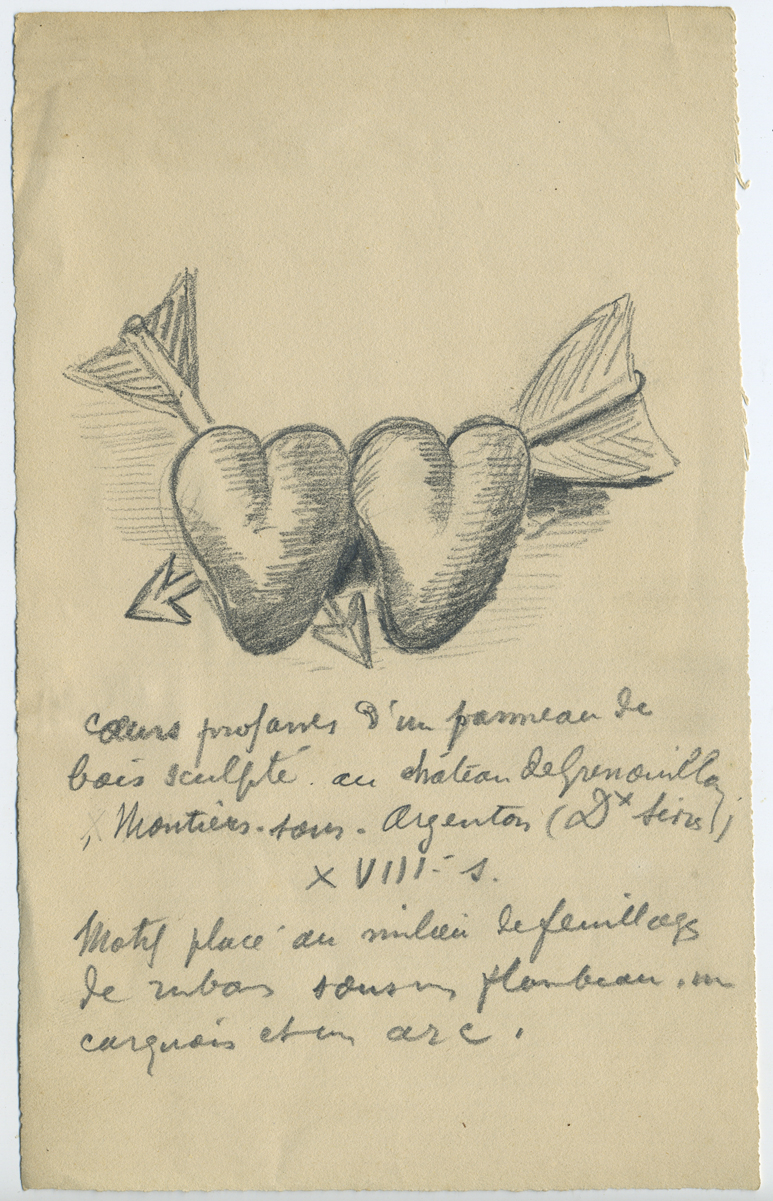 cœurs profanes d'un panneau de
bois sculpté au château de Grenouillon
, Moutiers-sous-Argenton (Dx Sèvres)
XVIII- s.
Motif placé au milieu de feuillages
de rubans sous un flambeau, un
carquois et un arc.